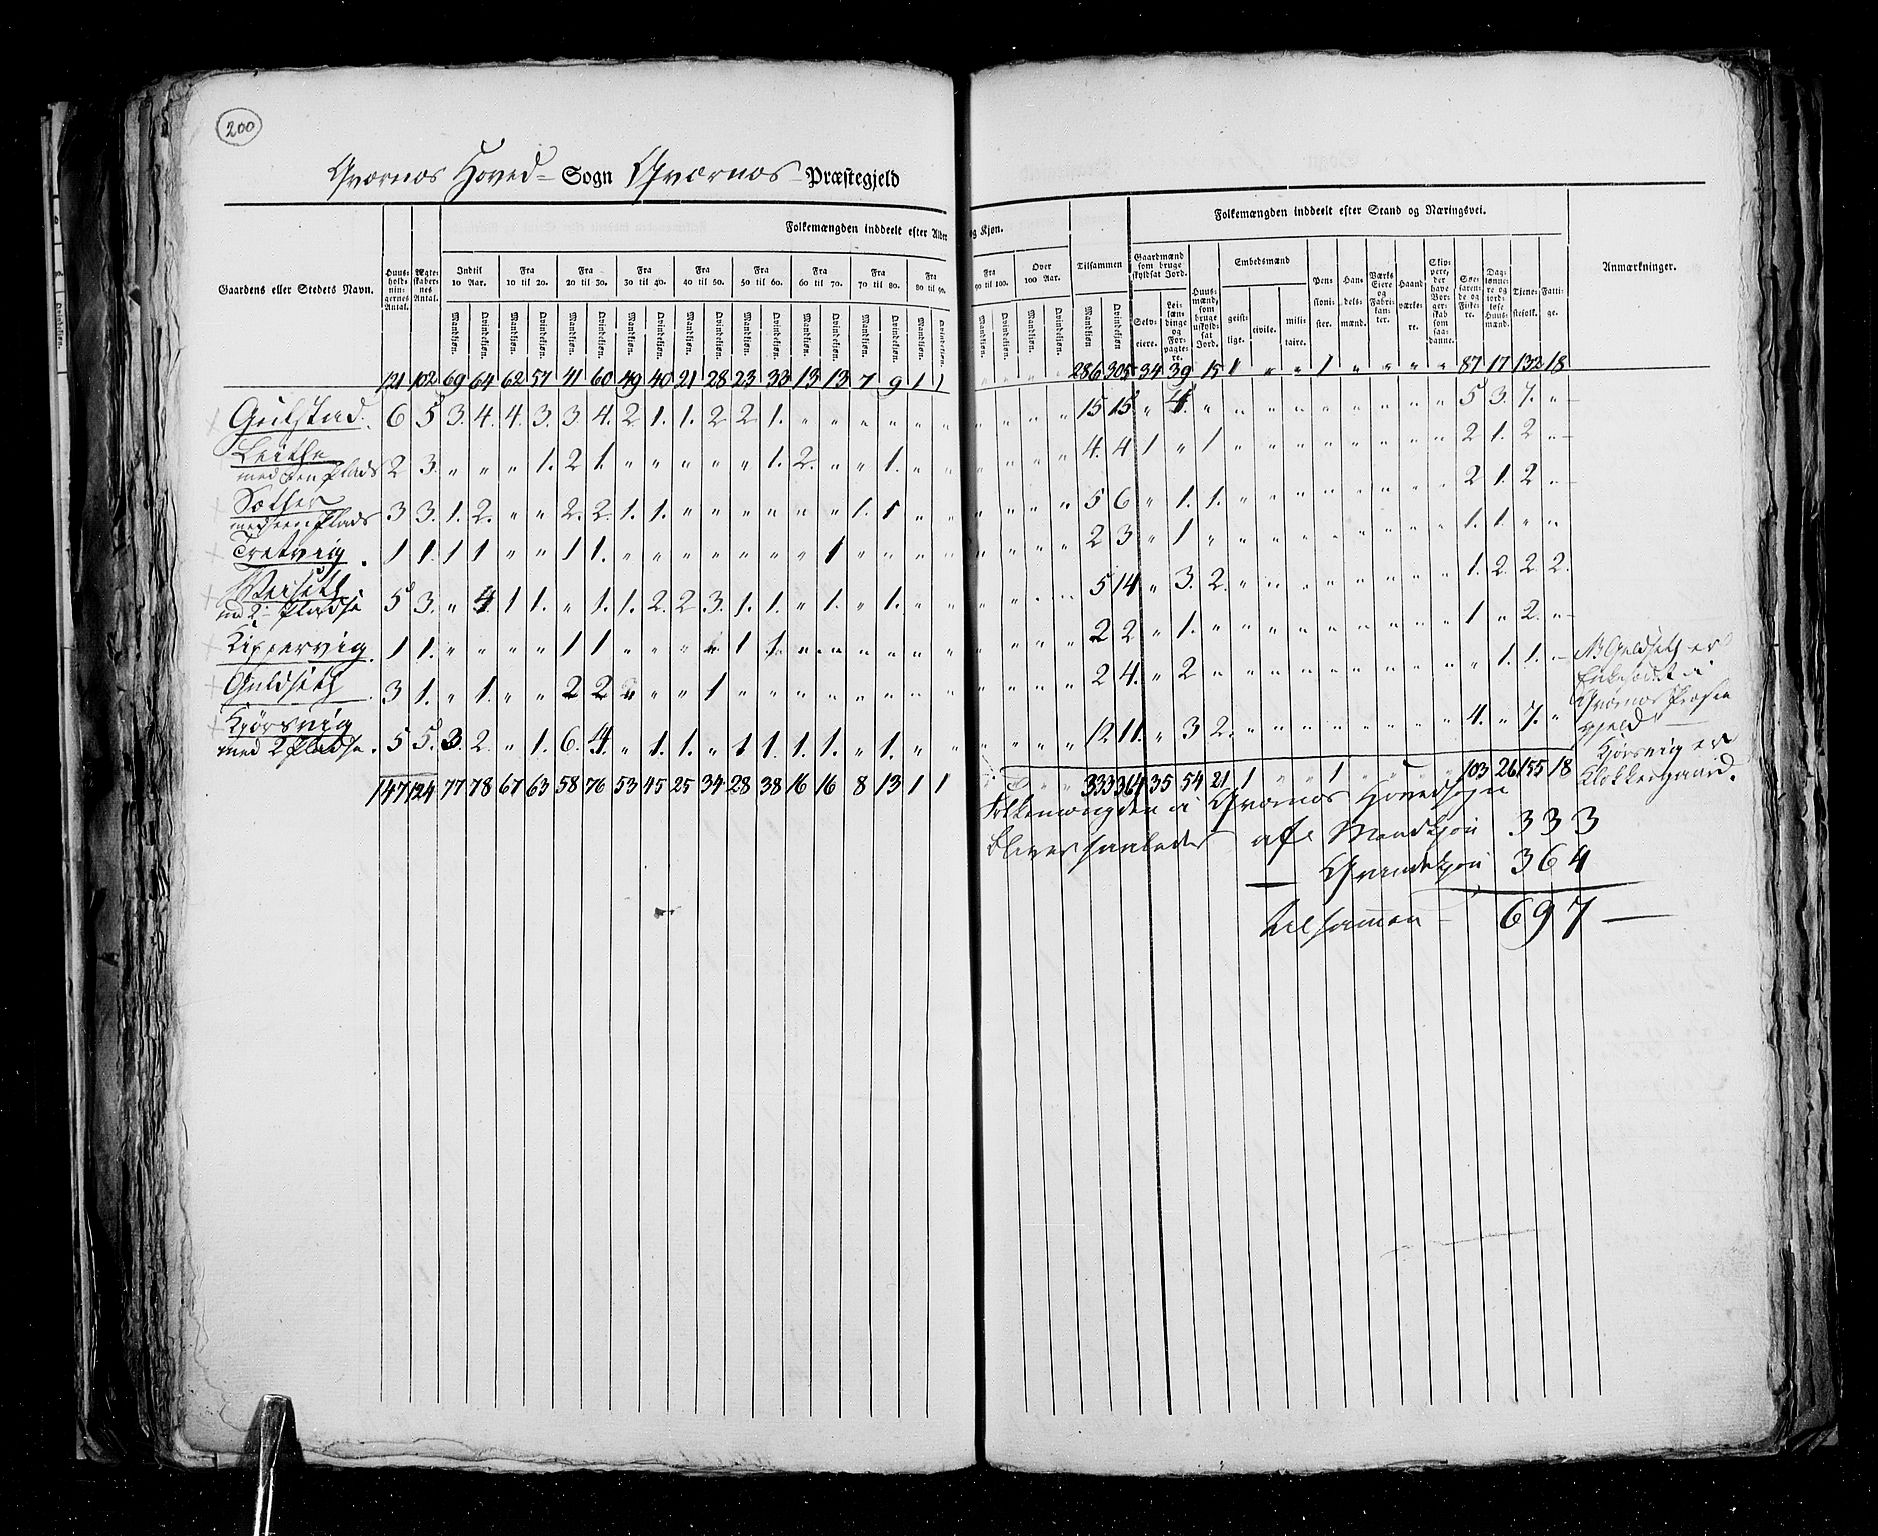 200
Qværnæs Hoved- Sogn Qværnæs Præstegjeld
Folkemængden inddeelt efter Alder og Kjøn.
Folkemængden inddeelt efter Stand og Næringsvei.
Gaardens eller Stedets Navn.
Huusholdningernes Antal.
Ægteskabernes Antal.
Indtil 10 Aar.
Fra 10 til 20.
Fra 20 til 30.
Fra 30 til 40.
Fra 40 til 50.
Fra 50 til 60.
Fra 60 til 70.
Fra 70 til 80.
Fra 80 til 90.
Fra 90 til 100.
Over 100 Aar.
Tilsammen
Mandkjøn. Qvindekjøn.
Gaardmænd som bruge skyldsat Jord.
Selveiere.
Leilændinge og Forpagtere.
Huusmænd, som bruge uskyldsat Jord.
Embedsmænd
geistlige. civile. militaire.
Pensionister.
Handelsmænd.
Værks Eiere og Fabrikanter.
Haandværkere.
Skippere, der have Borgerskab som saadanne.
Søefarende og Fiskere.
Dagtønnere og jordløse Huusmænd.
Tjenestefolk.
Fattige.
Anmærkninger.
121 102 69 64 62 57 41 60 49 40 21 28 23 33 13 13 7 9 1 1 " " " " 286 305 34 39 15 1 " " 1 " " " " 87 17 132 18
Gulstad. 6 5 3. 4. 4. 3. 3. 4. 2 1. 1. 2 2 1. " " " " " " " " " " 15 15 " 4. " " " " " " " " " 5 3. 7. "
Leithe
med een Plads 2 3. " " " 1. 2 1. " " " " " 1. 2. " " 1. " " " " " " 4. 4 1 " 1 " " " " " " " " 2 1. 2 "
Sæther
med een Plads 3 3. 1. 2. " " 2. 2. 1. 1. " " " " " " 1. 1 " " " " " " 5 6 " 1. 1. " " " " " " " " 2 1. 2 "
Tretvig. 1 1. 1 1 " " 1 1. " " " " " " " 1 " " " " " " " " 2 3 " 1 " " " " " " " " " 1. 1. " "
5 3. " 4 1 1. " 1. 1. 2. 2 3. 1. 1. " 1. " 1. " " " " " " 5 14 " 3. 2. " " " " " " " " 1. 2. 2 2.
md 2 Pladse
Kippervig. 1 1. " " " " 1 1 " " " " 1 1. " " " " " " " " " " 2 2 " 1. " " " " " " " " " 1 " 2. "
Guldseth. 3 1. " 1. " " 2 2 " " " 1 " " " " " " " " " " " " 2 4. " 2 " " " " " " " " " " 1. 1. "
Kjørsvig
med 2 Pladse. 5 5. 3 2. " 1. 6. 4. " 1. 1. " 1 1. 1. 1. " 1. " " " " " " 12 11. " 3 2. " " " " " " " " 4. " 7. "
147 124 77 78 67 63 58 76 53 45 25 34 28 38 16 16 8 13 1 1 " " " 333 364 35 54 21 1 " " 1 " " " " 103 26 155 18
NB Guldseth er
Enkesædet i
Qværnæs Præste
gjeld
Kjørsvig er
Klokkergaard.
Folkemængden i Qværnæs Hovedsogn
bliver saaledes af Mandkjøn 333
Qvindekjøn 364
tilsammen 697